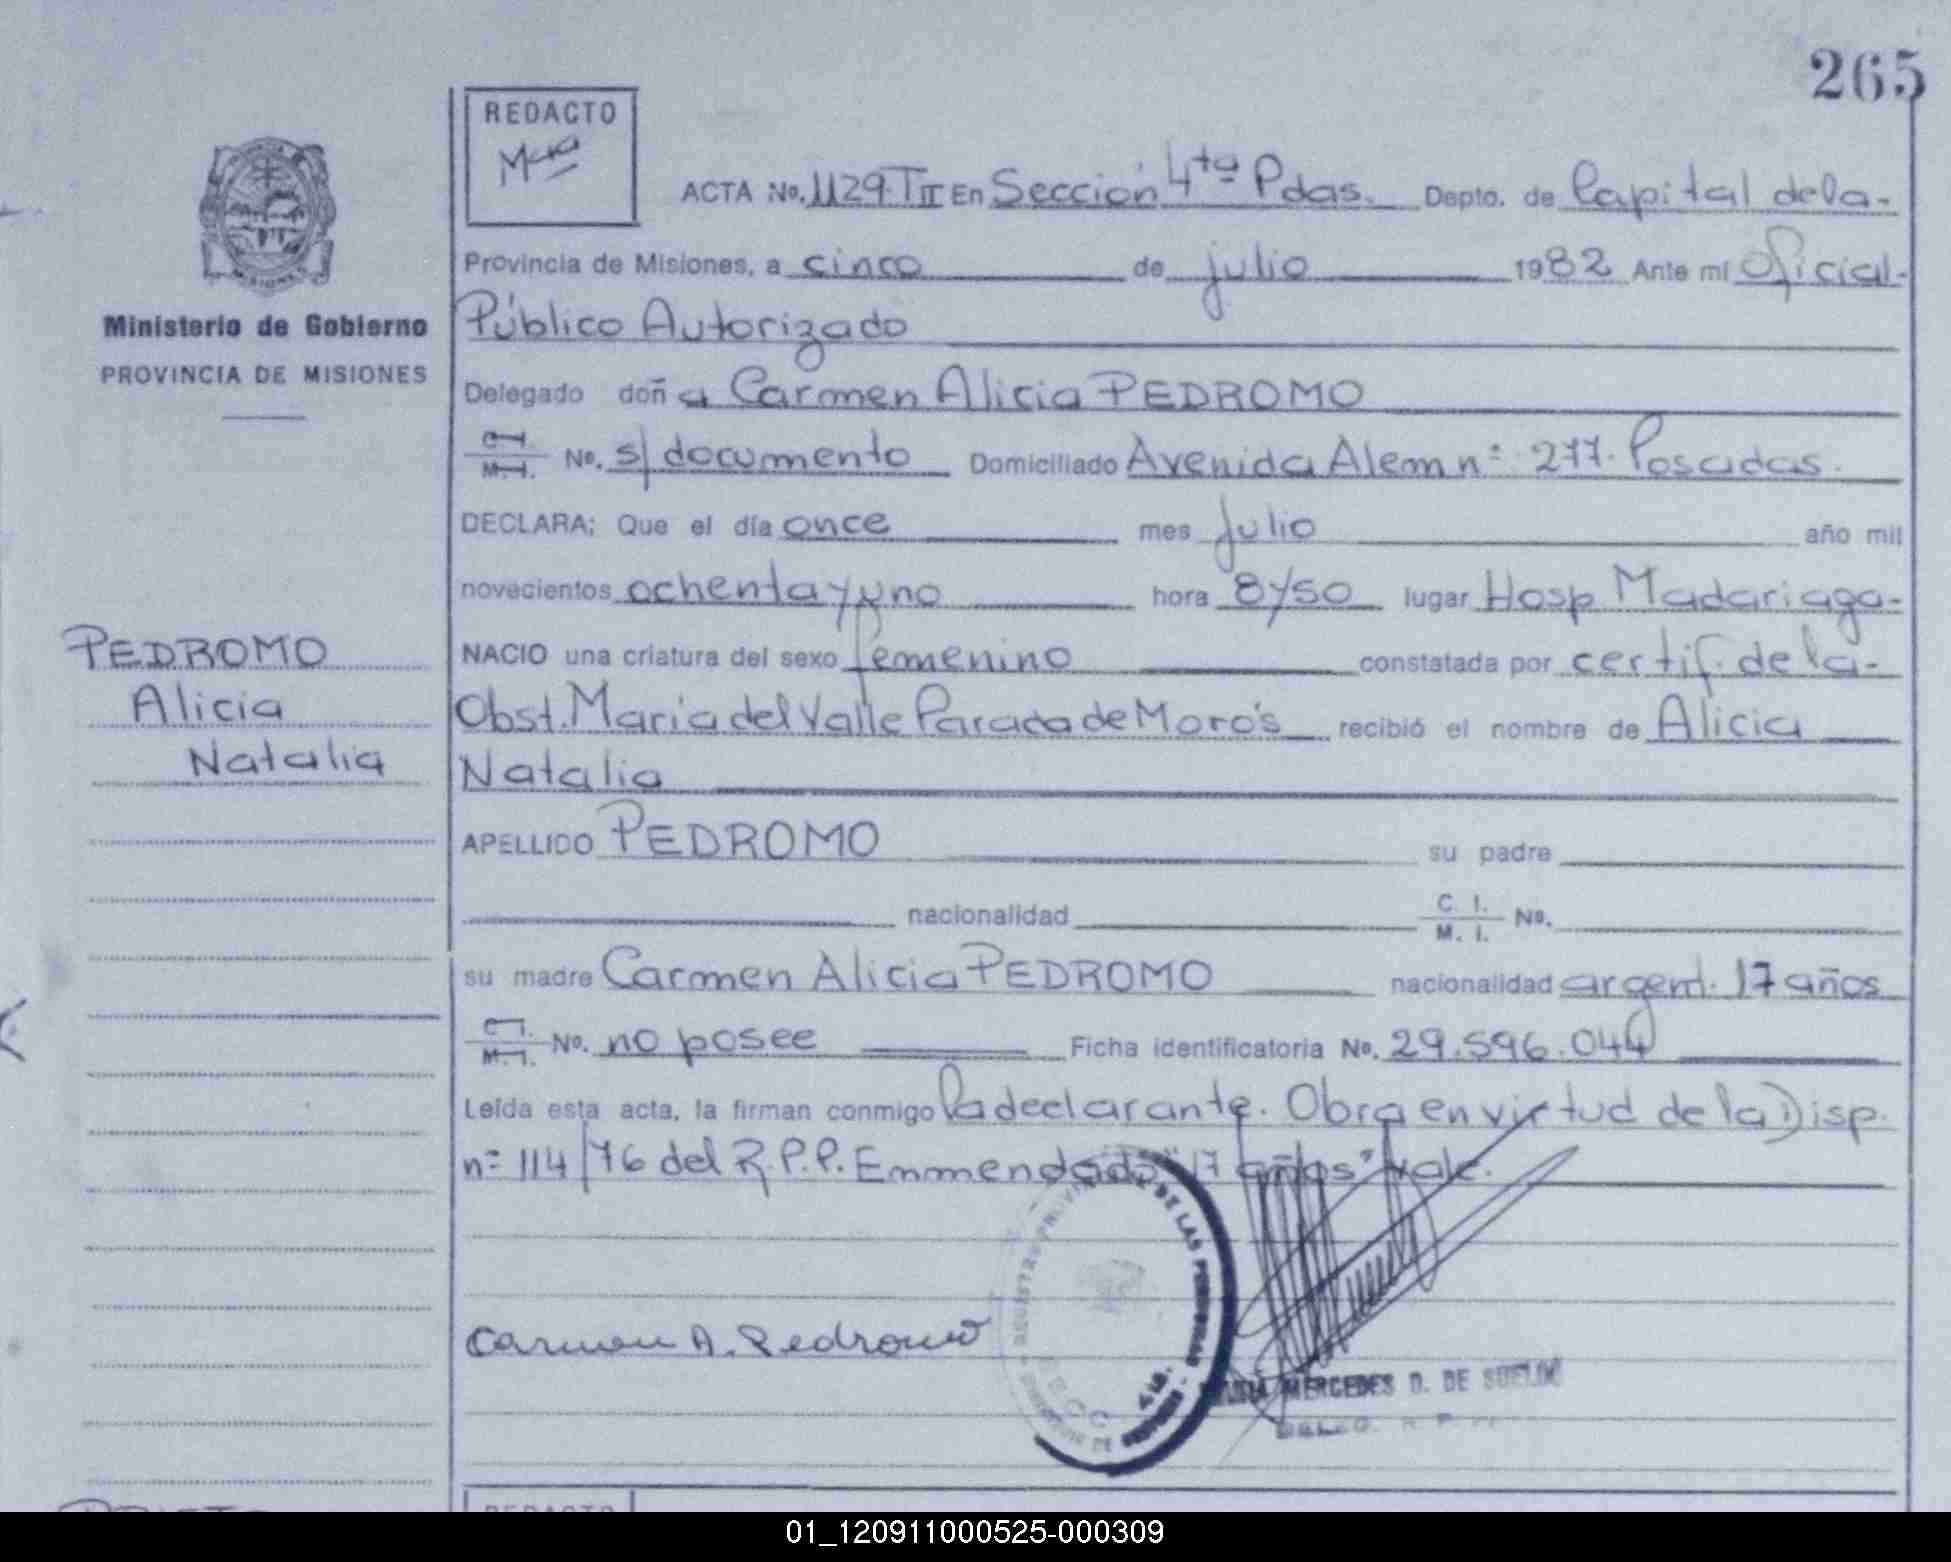 265
REDACTO
ACTA No. 1129.TII En Sección 4ta Pdas. Depto. de Capital de la-
Provincia de Misiones, a cinco de julio 1982 Ante mí Oficial-
Ministerio de Gobierno
Público Autorizado
PROVINCIA DE MISIONES
Delegado doña Carmen Alicia PEDROMO
C.I. M.I. No. s/documento Domiciliado Avenida Alem nº 277. Posadas.
DECLARA; Que el día once mes julio año mil
novecientos ochenta y uno hora 8y50 lugar Hosp Madariaga-
PEDROMO
NACIO una criatura del sexo femenino constatada por certif. de la-
Alicia
Obst. María del Valle Parada de Moro's recibió el nombre de Alicia
Natalia
Natalia
APELLIDO PEDROMO su padre
nacionalidad C. I. M. I. No.
su madre Carmen Alicia PEDROMO nacionalidad argent. 17 años
C.I. M.I. No. no posee Ficha identificatoria No. 29.596.044
Leída esta acta, la firman conmigo la declarante. Obra en virtud de la Disp.
nº 114/76 del R.P.P. Enmendado "17 años" vale.
Carmen A. Pedromo
DE LAS PERSONAS
MERCEDES D. DE
REDACTO
01_120911000525-000309